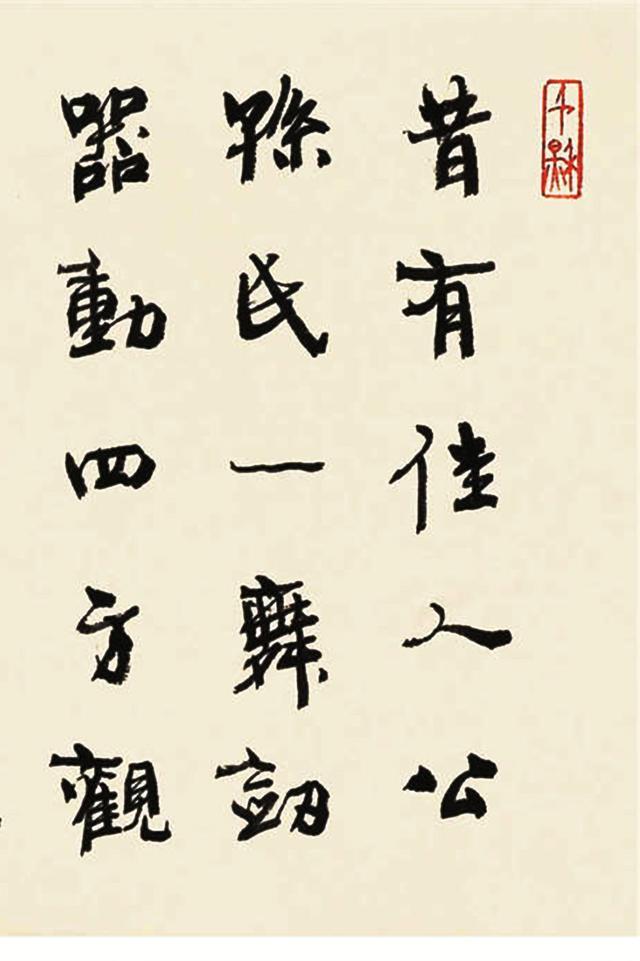 千秋
昔有佳人公
孫氏一舞劍
器動四方觀